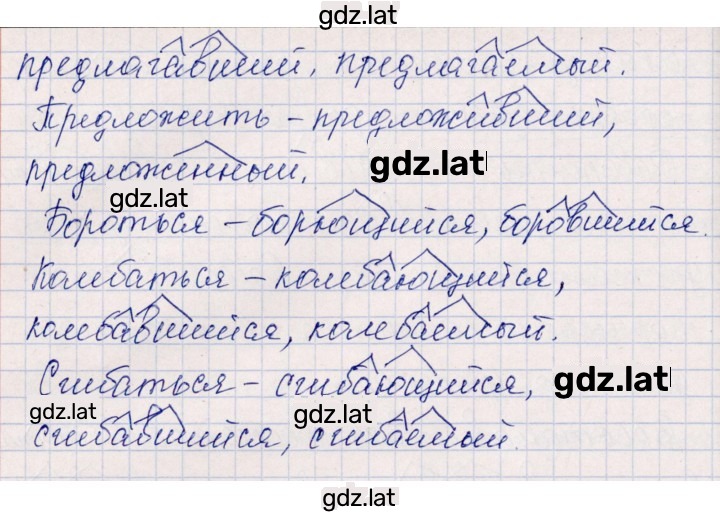 gdz.lat
предлагавший, предлагаемый.
Предложить – предложивший,
предложенный.
gdz.lat
gdz.lat
Бороться – борющийся, боровшийся.
Колебаться – колебающийся,
колебавшийся, колебаемый.
Сгибаться – сгибающийся,
gdz.lat
gdz.lat
gdz.lat
сгибавшийся, сгибаемый.
gdz.lat